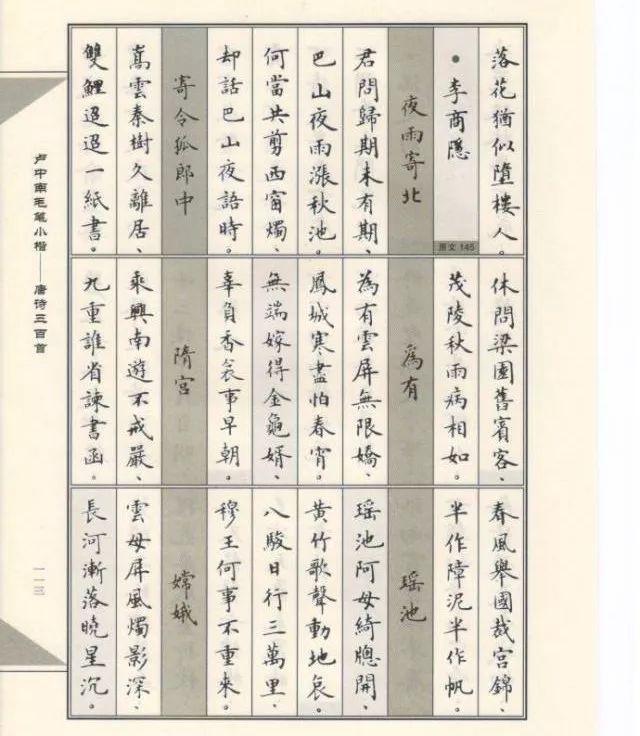 落花猶似墮樓人。
•李商隱
原文 145
夜雨寄北
君問歸期未有期、
巴山夜雨漲秋池。
何當共剪西窗燭、
却話巴山夜語時。
寄令狐郎中
嵩雲秦樹久離居、
雙鯉迢迢一紙書。
休問梁園舊賓客、
茂陵秋雨病相如。
為有
為有雲屏無限嬌、
鳳城寒盡怕春宵。
無端嫁得金龜婿、
辜負香衾事早朝。
隋宮
乘興南遊不戒嚴、
九重誰省諫書函。
春風舉國裁宮錦、
半作障泥半作帆。
瑤池
瑤池阿母綺牕開、
黃竹歌聲動地哀。
八駿日行三萬里、
穆王何事不重來。
嫦娥
雲母屏風燭影深、
長河漸落曉星沉。
卢中南毛笔小楷——唐诗三百首
一一三